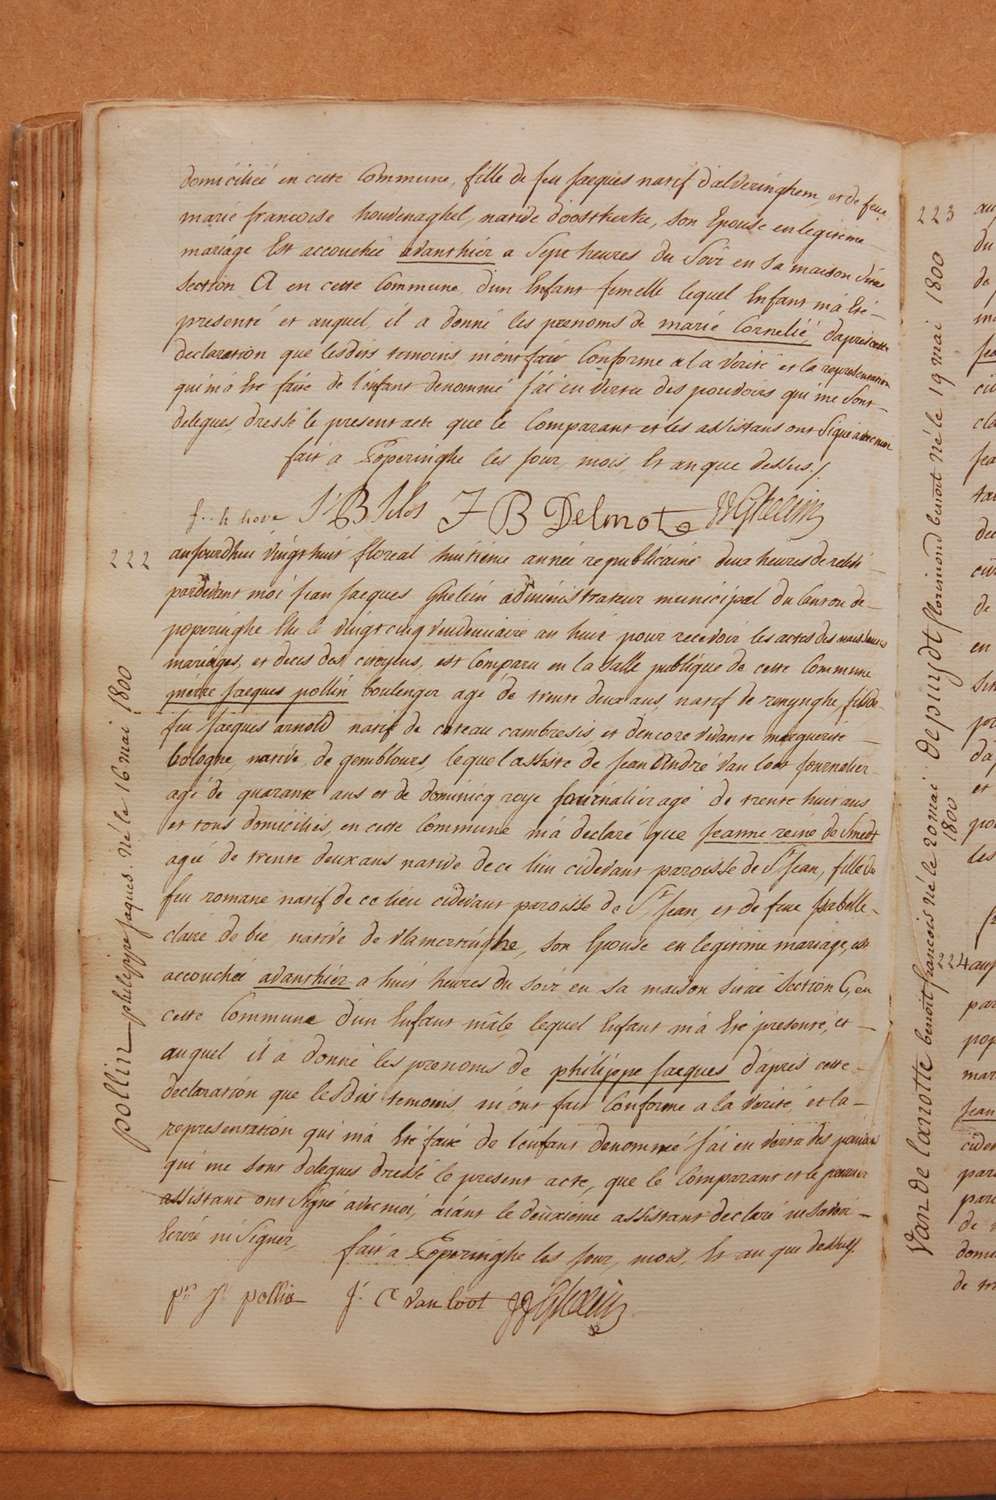 domiciliée en cette Commune, fille de feu Jacques natif d'alveringhem, et de feue
marie francoise houvenaghel, native d'oostkerke, son Epouse en legitime
mariage Est accouchée avanthier a Sept heures du Soir en sa maison sise
Section A en cette Commune d'un Enfant femelle lequel Enfant m'a Eté
presenté et auquel il a donné les prenoms de marie Cornelie d'après cette
declaration que lesdits temoins m'ont fait Conforme a la verité et la representation
qui m'a Eté faite de l'enfant denommé J'ai en vertu des pouvoirs qui me Sont
delegues, dressé le present acte que le Comparant et les assistans ont Signé avec moi
fait a Poperinghe les Jour, mois, Et an que dessus./
J B Delmote JJGhelein
222
aujourdhui vingt huit floreal huitieme année republicaine deux heures de relevé
pardevant moi Jean Jacques Ghelein administrateur municipal du Canton de
poperinghe Elu le vingt cinq vendemiaire an huit pour recevoir les actes des naissances
mariages, et deces des citoyens, est Comparu en la Salle publique de cette Commune
pierre Jacques pollin boulenger agé de trente deux ans, natif de renynghe, fils de
feu Jacques arnold natif de cateau cambresis, et d'encore vivante marguerite
bologne, native de gemblours, lequel assisté de Jean André van loot Journalier
agé de quarante ans et de dominicq roye Journalier agé de trente huit ans
et tous domiciliés, en cette Commune m'a declaré que Jeanne reine de Smedt
agée de trente deux ans native de ce lieu cidevant paroisse de St Jean, fille de
feu romane natif de ce lieu cidevant paroisse de St Jean, et de feue Isabelle
claire de bie, native de vlamertinghe, son Epouse en legitime mariage, est
accouchée avanthier a huit heures du soir en sa maison sise Section C, en
cette Commune d'un Enfant mâle, lequel Enfant m'a Eté presenté, et
auquel il a donné les prenoms de philippe Jacques d'après cette
declaration que lesdits temoins, m'ont fait Conforme a la verité, et la
representation qui m'a Eté faite de l'enfant denommé J'ai en vertu des pouvoirs
qui me sont delegues dressé le present acte, que le Comparant et le premier
assistant ont Signé avec moi, aiant le deuxieme assistant declaré ne savoir
Ecrire ni Signer
fait a Poperinghe les Jour, mois, Et an que dessus.
pre Js pollin J. a van loot JJGhelein
pollin philippe Jaques né le 16 mai 1800
223
van de larrotte benoit francois né le 20 mai 1800
depuydt florimond benoit né le 19 mai 1800
224